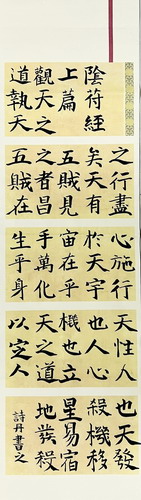 陰符經
上篇
觀天之
道執天
之行盡
矣天有
五賊見
之者昌
五賊在
心施行
於天宇
宙在乎
手萬化
生乎身
天性人
也人心
機也立
天之道
以定人
也天發
殺機移
星易宿
地發殺
詩丹書之